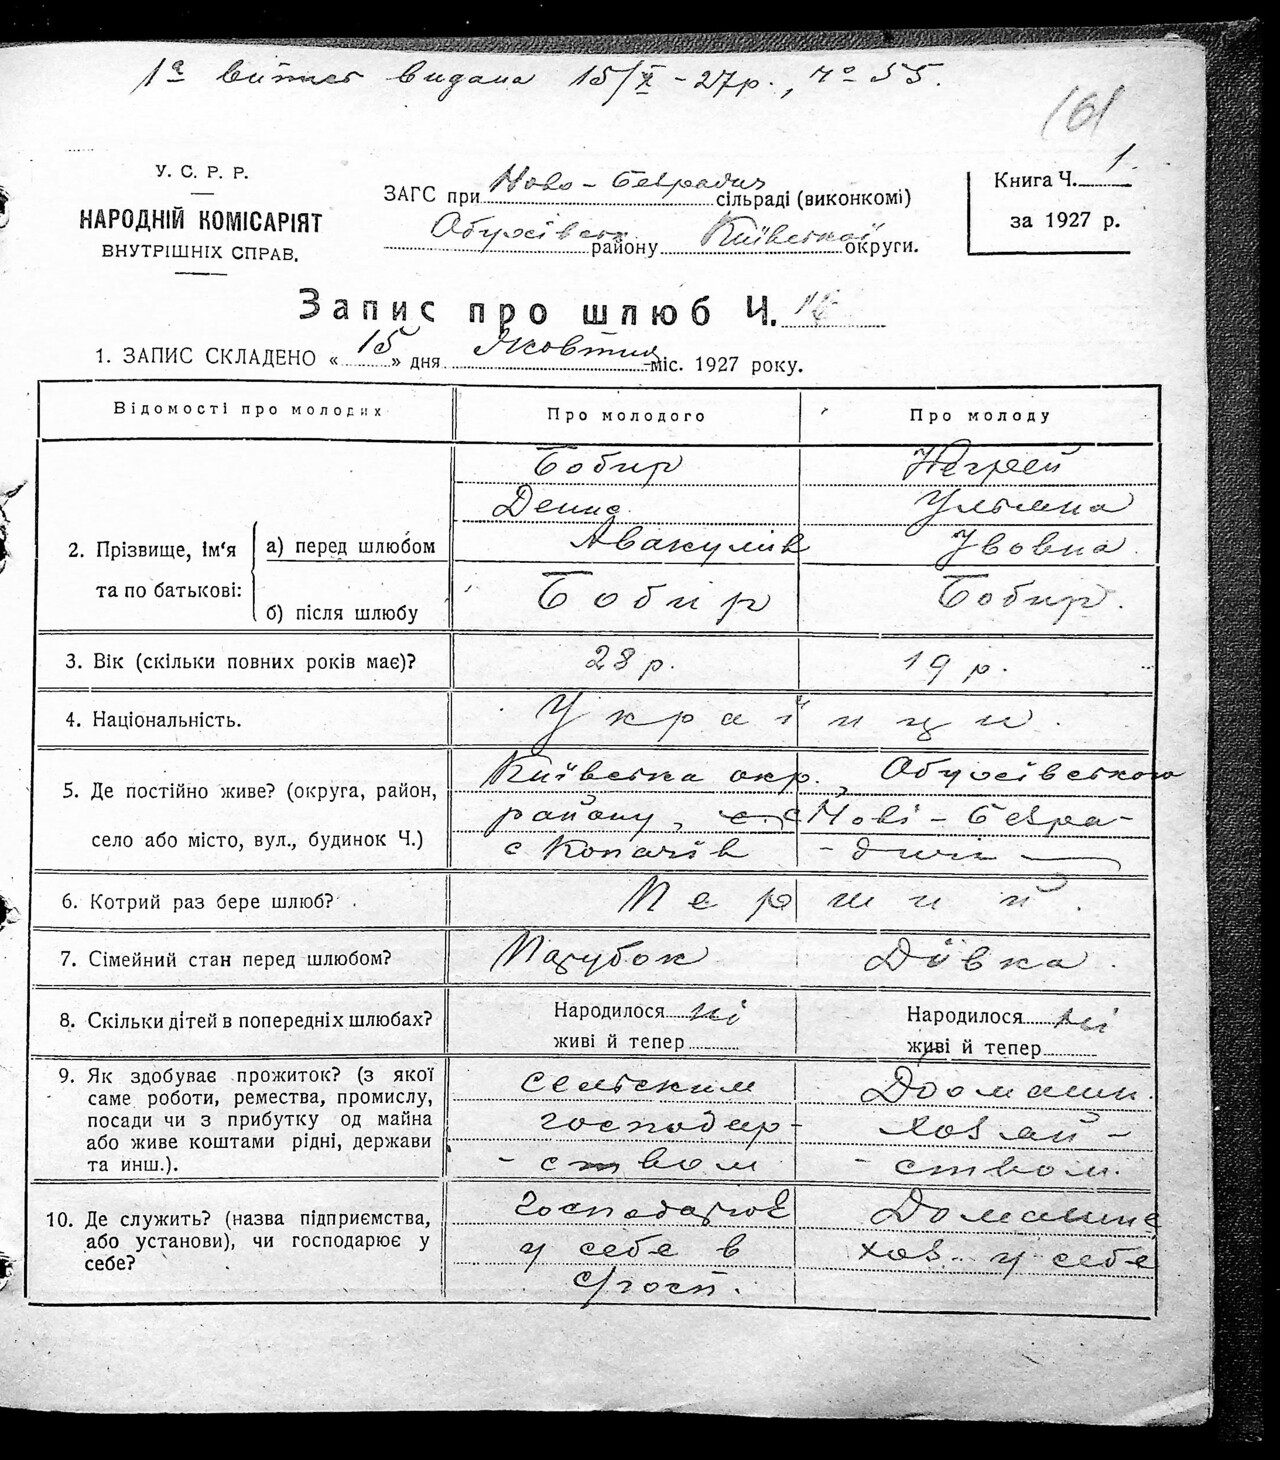 1а витяг видана 15/X – 27р., № 55.
161
У. С. Р. Р.
НАРОДНІЙ КОМІСАРІЯТ
ВНУТРІШНІХ СПРАВ.
ЗАГС при Ново-Безрадич сільраді (виконкомі)
Обухівськ району Київської округи.
Книга Ч. 1.
за 1927 р.
Запис про шлюб Ч.
1. ЗАПИС СКЛАДЕНО « 15 » дня Яковтня міс. 1927 року.
Відомості про молодих Про молодого Про молоду
2. Прізвище, ім'я та по батькові:
а) перед шлюбом
Бобир
Денис
Авакумів
Негрей
Ульяна
Увовна.
б) після шлюбу Бобир Бобир.
3. Вік (скільки повних років має)? 28 р. 19 р.
4. Національність. Українци.
5. Де постійно живе? (округа, район,
село або місто, вул., будинок Ч.)
Київська окр., Обухівського
району, с. Нові-Безра-
с Копачів -дичі
6. Котрий раз бере шлюб? Перший.
7. Сімейний стан перед шлюбом? Парубок Дівка.
8. Скільки дітей в попередніх шлюбах?
Народилося ні
живі й тепер
Народилося ні
живі й тепер
9. Як здобуває прожиток? (з якої
саме роботи, ремества, промислу,
посади чи з прибутку од майна
або живе коштами рідні, держави
та инш.).
сельским
господар-
-ством
Доомашн.
хозяй-
-ством.
10. Де служить? (назва підприємства,
або установи), чи господарює у
себе?
Господарює
у себе в
с/госп.
Домашне
хоз. у себе